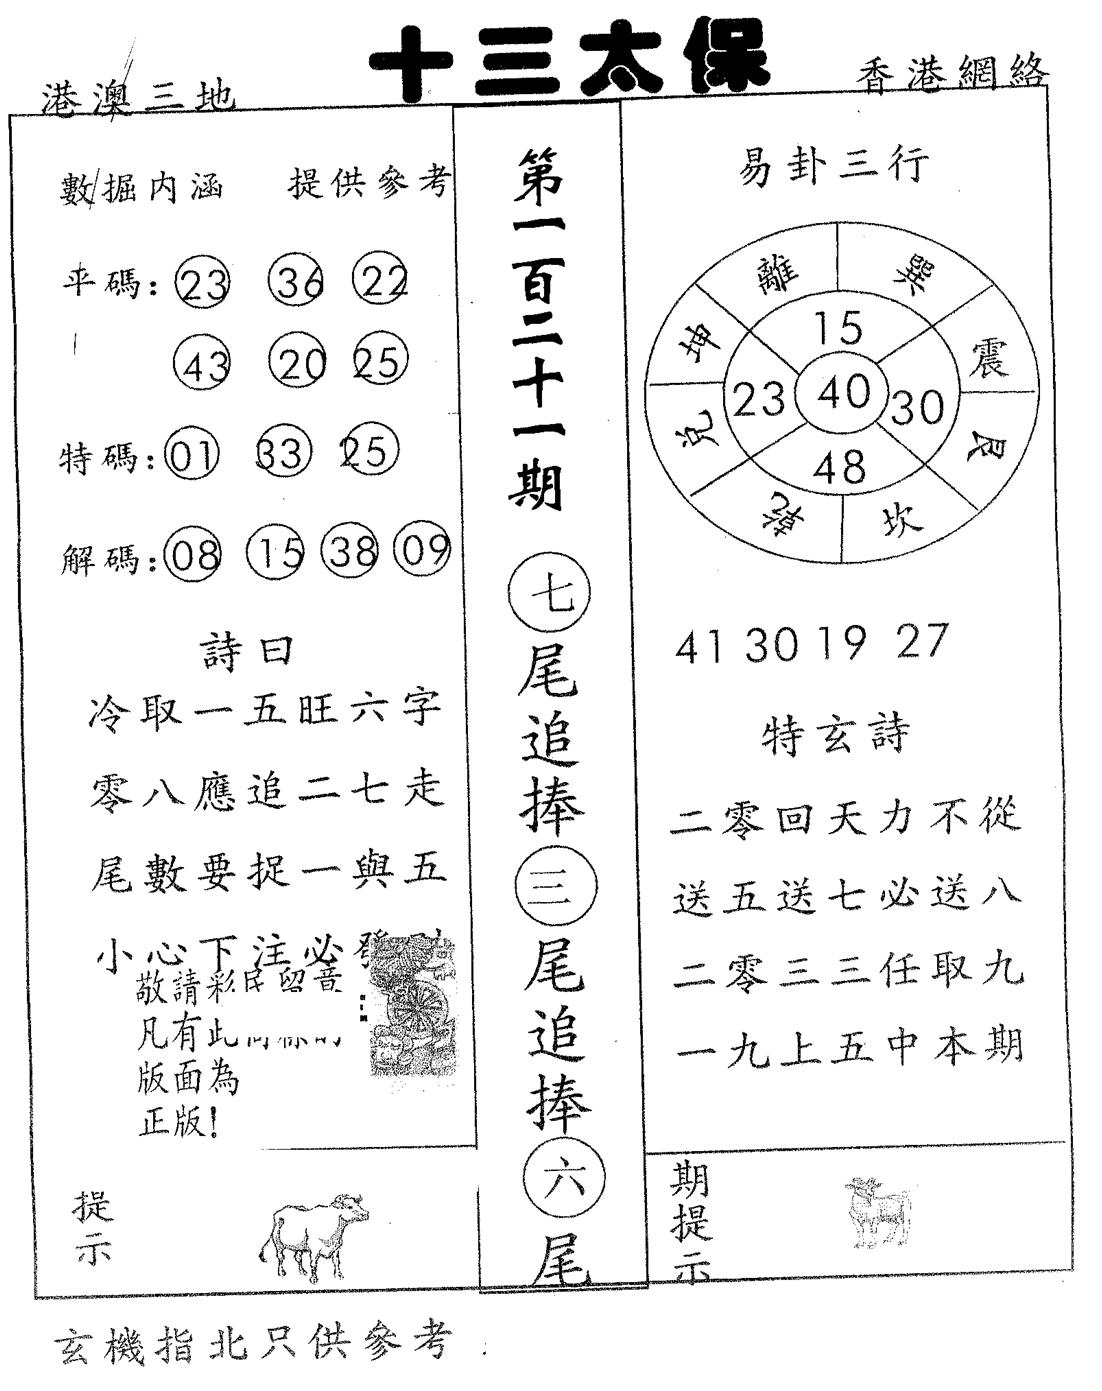 十三太保
港澳三地
香港網絡
數掘内涵 提供參考
平碼: 23 36 22
43 20 25
特碼: 01 33 25
解碼: 08 15 38 09
詩曰
冷取一五旺六字
零八應追二七走
尾數要捉一與五
小心下注必
敬請彩民留意
凡有此
版面為
正版!
提示
第一百二十一期
七尾追捧三尾追捧六尾
易卦三行
離 巽
坤 震
兌 艮
乾 坎
15
23 40 30
48
41 30 19 27
特玄詩
二零回天力不從
送五送七必送八
二零三三任取九
一九上五中本期
期提示
玄機指北只供參考